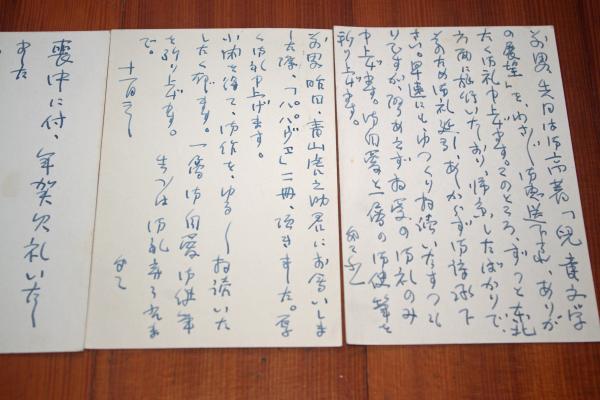 前略 先日は御高著「児童文学
の展望」を、わざ〳〵御恵送下され、ありが
たく御礼申上げます。このところ、ずっと東北
方面に旅行いたしおり帰京したばかりで
そのため御礼延引、あしからず御諒承下
さい。早速にも、ゆっくり拝読いたすつも
りですが、取りあえず拝受の御礼のみ
申上げます。御自愛と一層の御健筆を
祈り上げます。
前略 昨日、青山虎之助君にお会いしま
した際、「パパヴェ」一冊、頂きました。厚
く御礼申上げます。
小閑を得て、御作を、ゆる〳〵拝読いた
したく存じます。一層御自愛御健筆
を祈り上げます。
で。
喪中に付、年賀欠礼いたし
ました